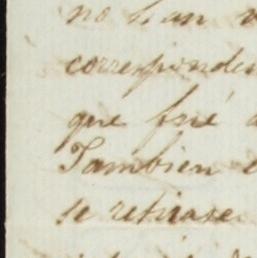 no han
corresponde
que fué
Tambien
se retirase